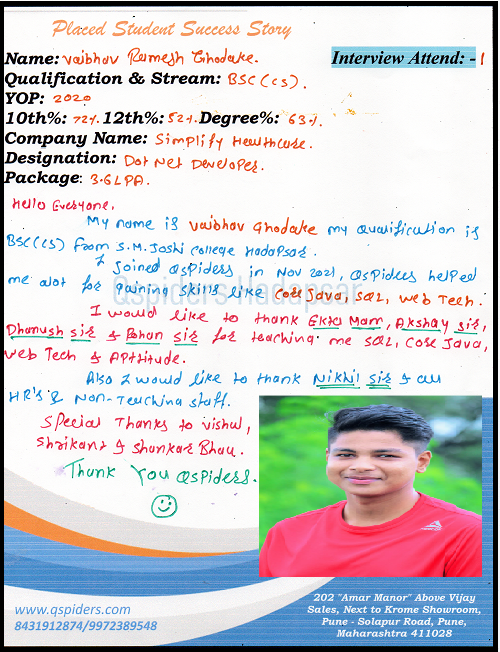 Placed Student Success Story
Name: Vaibhav Ramesh Ghodake. Interview Attend: - 1
Qualification & Stream: BSC (CS).
YOP: 2020
10th%: 72%. 12th%: 52%. Degree%: 63%.
Company Name: Simplify Healthcare.
Designation: Dot Net Developer.
Package: 3.6LPA.
Hello Everyone,
My name is Vaibhav Ghodake my Qualification is
BSC(CS) From S.M. Joshi College Hadapsar.
I Joined QSpiders in Nov 2021, QSpiders helped
me alot for gaining skills like Core Java, SQL, Web Tech.
Qspiders Hadapsar
I would like to thank Ekta Mam, Akshay sir,
Dhanush sir & Rohan sir for teaching me SQL, Core Java,
Web Tech & Aptitude.
Also I would like to thank Nikhil sir & all
HR's & Non-Teaching staff.
Special Thanks to Vishal,
Shrikant & Shankar Bhau.
Thank You QSpiders.
www.qspiders.com
8431912874/9972389548
202 "Amar Manor" Above Vijay
Sales, Next to Krome Showroom,
Pune - Solapur Road, Pune,
Maharashtra 411028